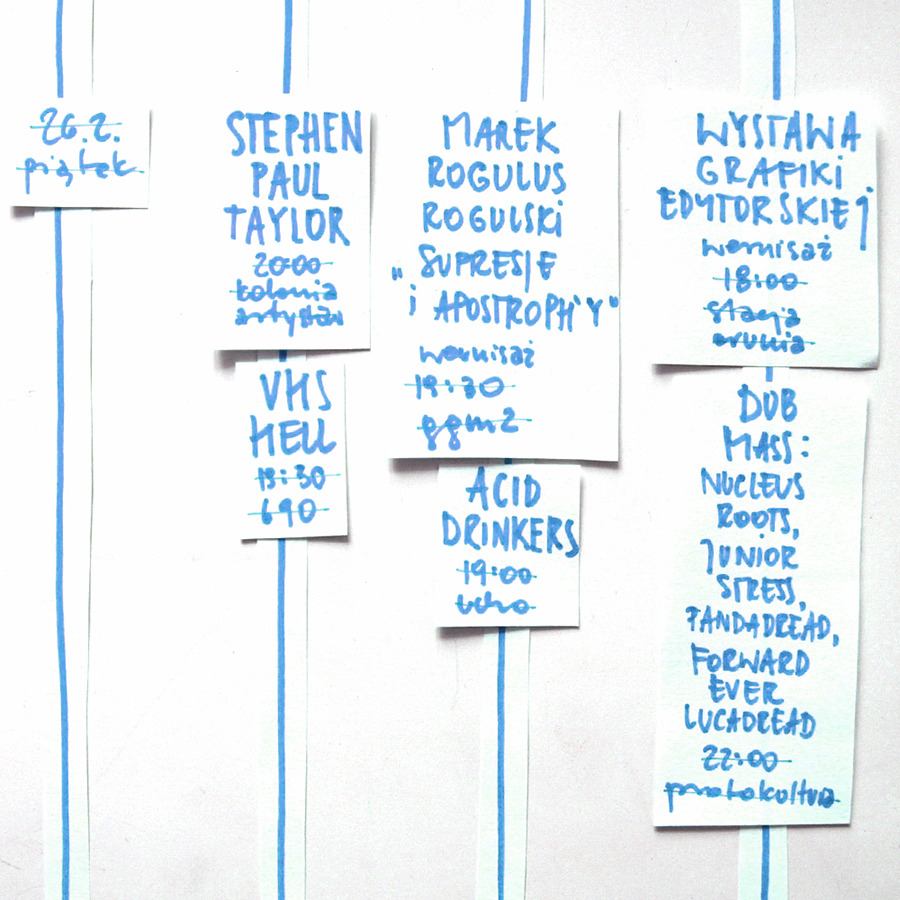 26.2.
piątek
STEPHEN
PAUL
TAYLOR
20:00
kolonia
artystów
VHS
HELL
19:30
690
MAREK
ROGULUS
ROGULSKI
„SUPRESJE
i APOSTROPH'Y"
wernisaż
19:30
ggm2
ACID
DRINKERS
19:00
ucho
WYSTAWA
GRAFIKI
EDYTORSKIEJ
wernisaż
18:00
stacja
orunia
DUB
MASS:
NUCLEUS
ROOTS,
JUNIOR
STRESS,
PANDADREAD,
FORWARD
EVER
LUCADREAD
22:00
protokultura